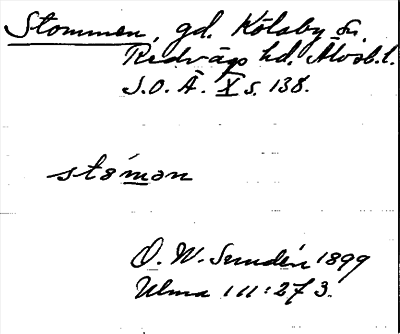 Stommen, gd. Kölaby sn.
Redvägs hd. Älvsb. l.
S.O.Ä. X s. 138.
stómən
O. W. Sundén 1899
Ulma 111:273.